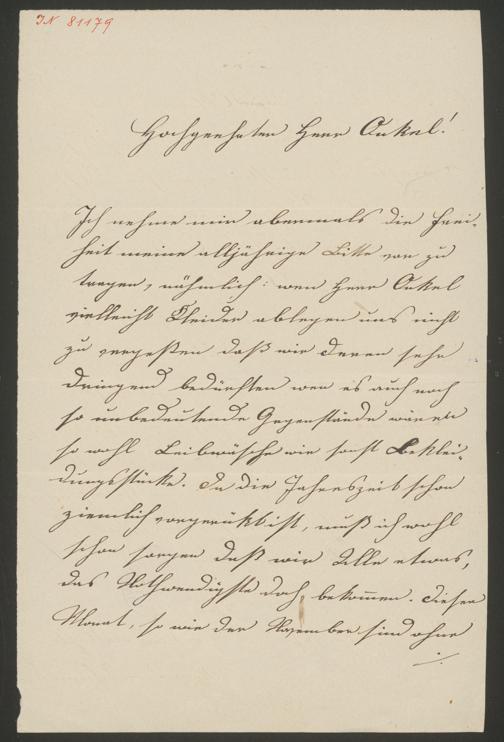 IN 81179
Hochgeehrter Herr Onkel!
Ich nehme mir abermals die Frei-
heit meine alljährige Bitte vor zu
tragen, nähmlich: wen Herr Onkel
vielleicht Kleider ablegen uns nicht
zu vergeßen daß wir deren sehr
dringend bedürften wen es auch noch
so unbedeutende Gegenstände wären
so wohl Leibwäsche wie sonst Beklei-
dungsstücke. Da die Jahreszeit schon
ziemlich vorgerückt ist, muß ich wohl
schon sorgen daß wir Alle etwas,
das Nothwendigste doch bekommen. Dieser
Monat, so wie der November sind ohne
./.